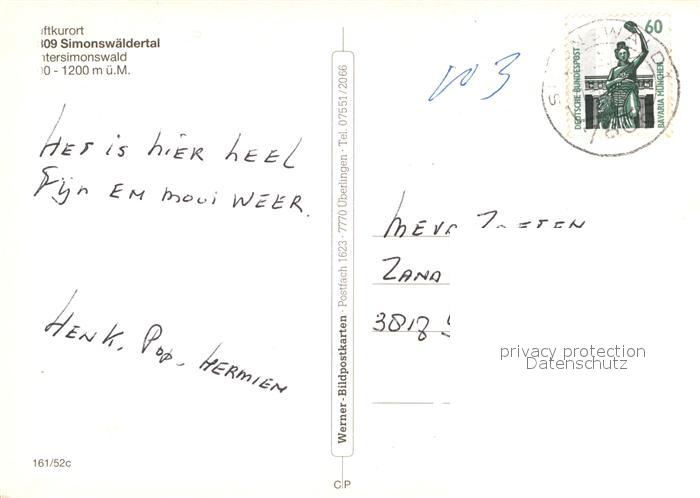 ftkurort
809 Simonswäldertal
ntersimonswald
00 - 1200 m ü.M.
HET is hier HEEL
Fijn EM mooi WEER.
HENK. Pop. HERMIEM
161/52c
Werner-Bildpostkarten · Postfach 1623 · 7770 Überlingen · Tel. 07551/2066
C P
60
DEUTSCHE BUNDESPOST
BAVARIA MÜNCHEN
MEVR
ZAND
privacy protection
Datenschutz